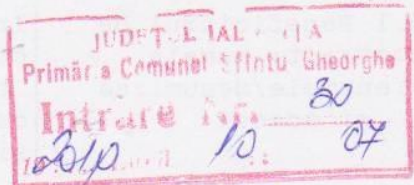 JUDEȚUL IALOMIȚA
Primăria Comunei Sfîntu Gheorghe
Intrare Nr. 30
2010 10 07